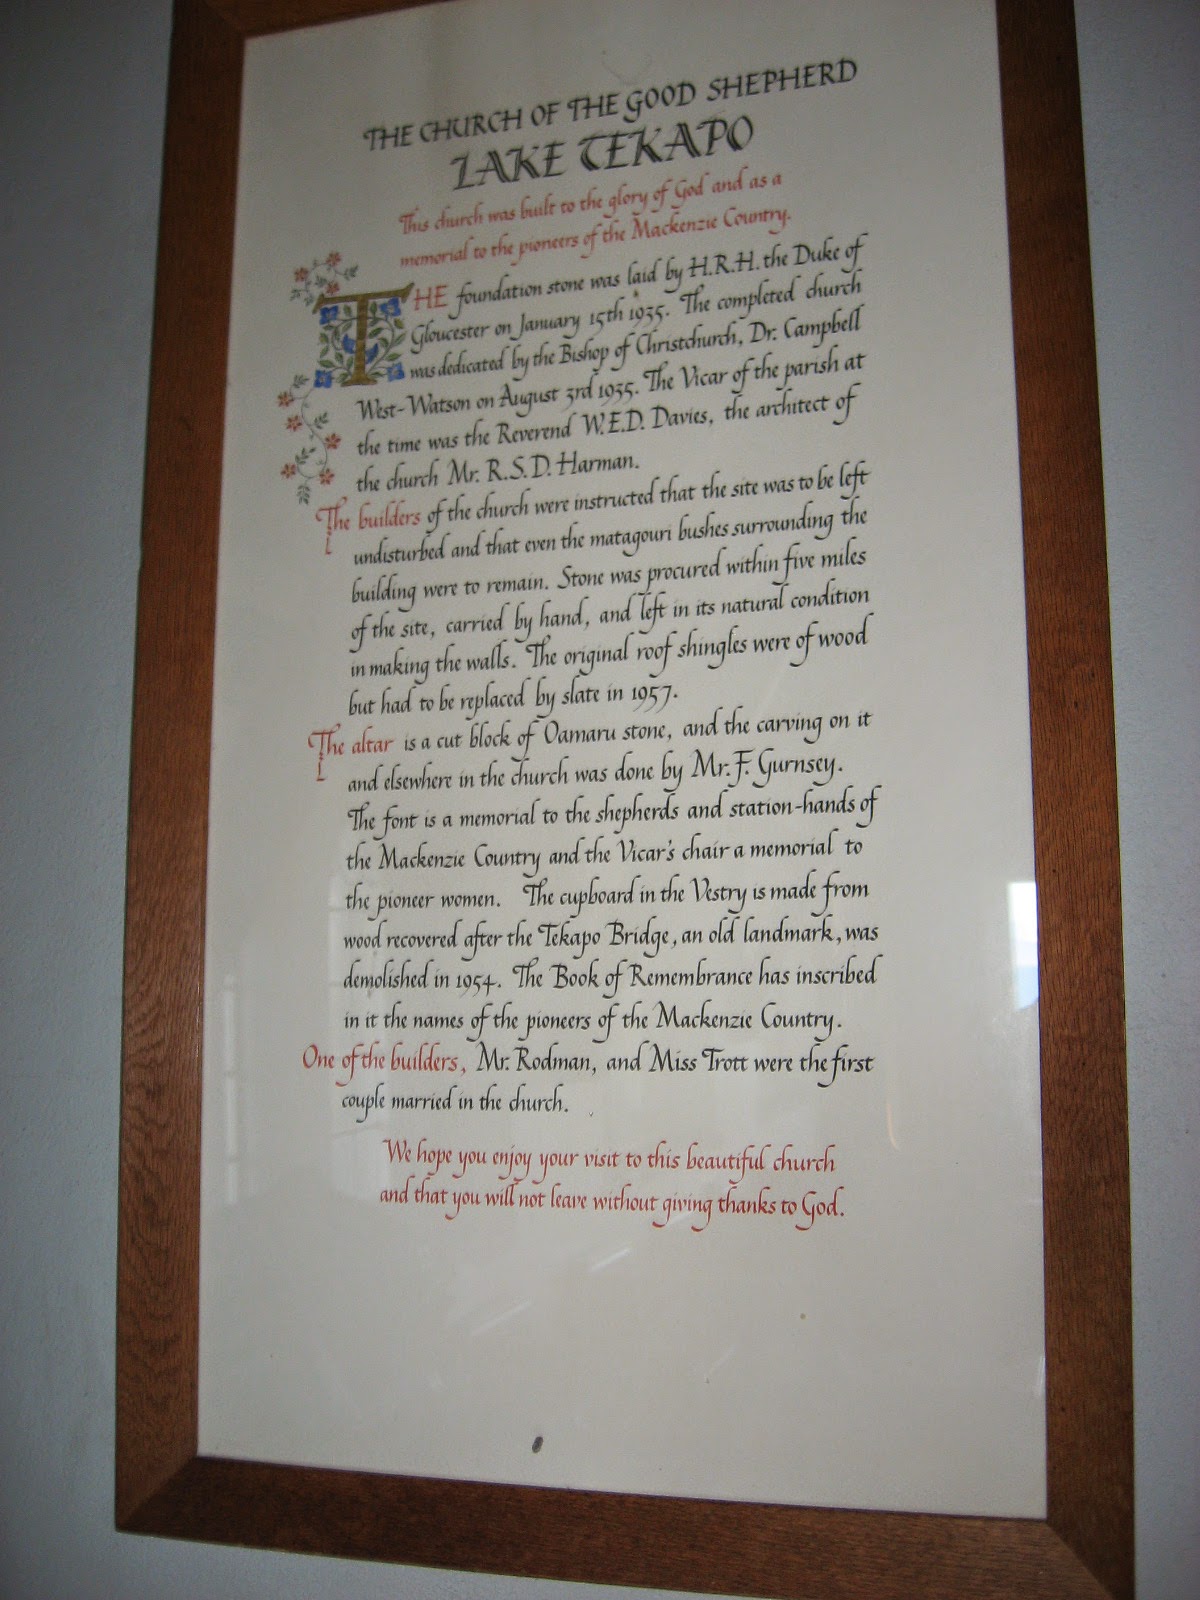 THE CHURCH OF THE GOOD SHEPHERD
LAKE TEKAPO
This church was built to the glory of God and as a
memorial to the pioneers of the Mackenzie Country.
THE foundation stone was laid by H.R.H. the Duke of
Gloucester on January 15th 1935. The completed church
was dedicated by the Bishop of Christchurch, Dr. Campbell
West-Watson on August 3rd 1935. The Vicar of the parish at
the time was the Reverend W.E.D. Davies, the architect of
the church Mr. R.S.D. Harman.
The builders of the church were instructed that the site was to be left
undisturbed and that even the matagouri bushes surrounding the
building were to remain. Stone was procured within five miles
of the site, carried by hand, and left in its natural condition
in making the walls. The original roof shingles were of wood
but had to be replaced by slate in 1957.
The altar is a cut block of Oamaru stone, and the carving on it
and elsewhere in the church was done by Mr. F. Gurnsey.
The font is a memorial to the shepherds and station-hands of
the Mackenzie Country and the Vicar's chair a memorial to
the pioneer women. The cupboard in the Vestry is made from
wood recovered after the Tekapo Bridge, an old landmark, was
demolished in 1954. The Book of Remembrance has inscribed
in it the names of the pioneers of the Mackenzie Country.
One of the builders, Mr. Rodman, and Miss Trott were the first
couple married in the church.
We hope you enjoy your visit to this beautiful church
and that you will not leave without giving thanks to God.